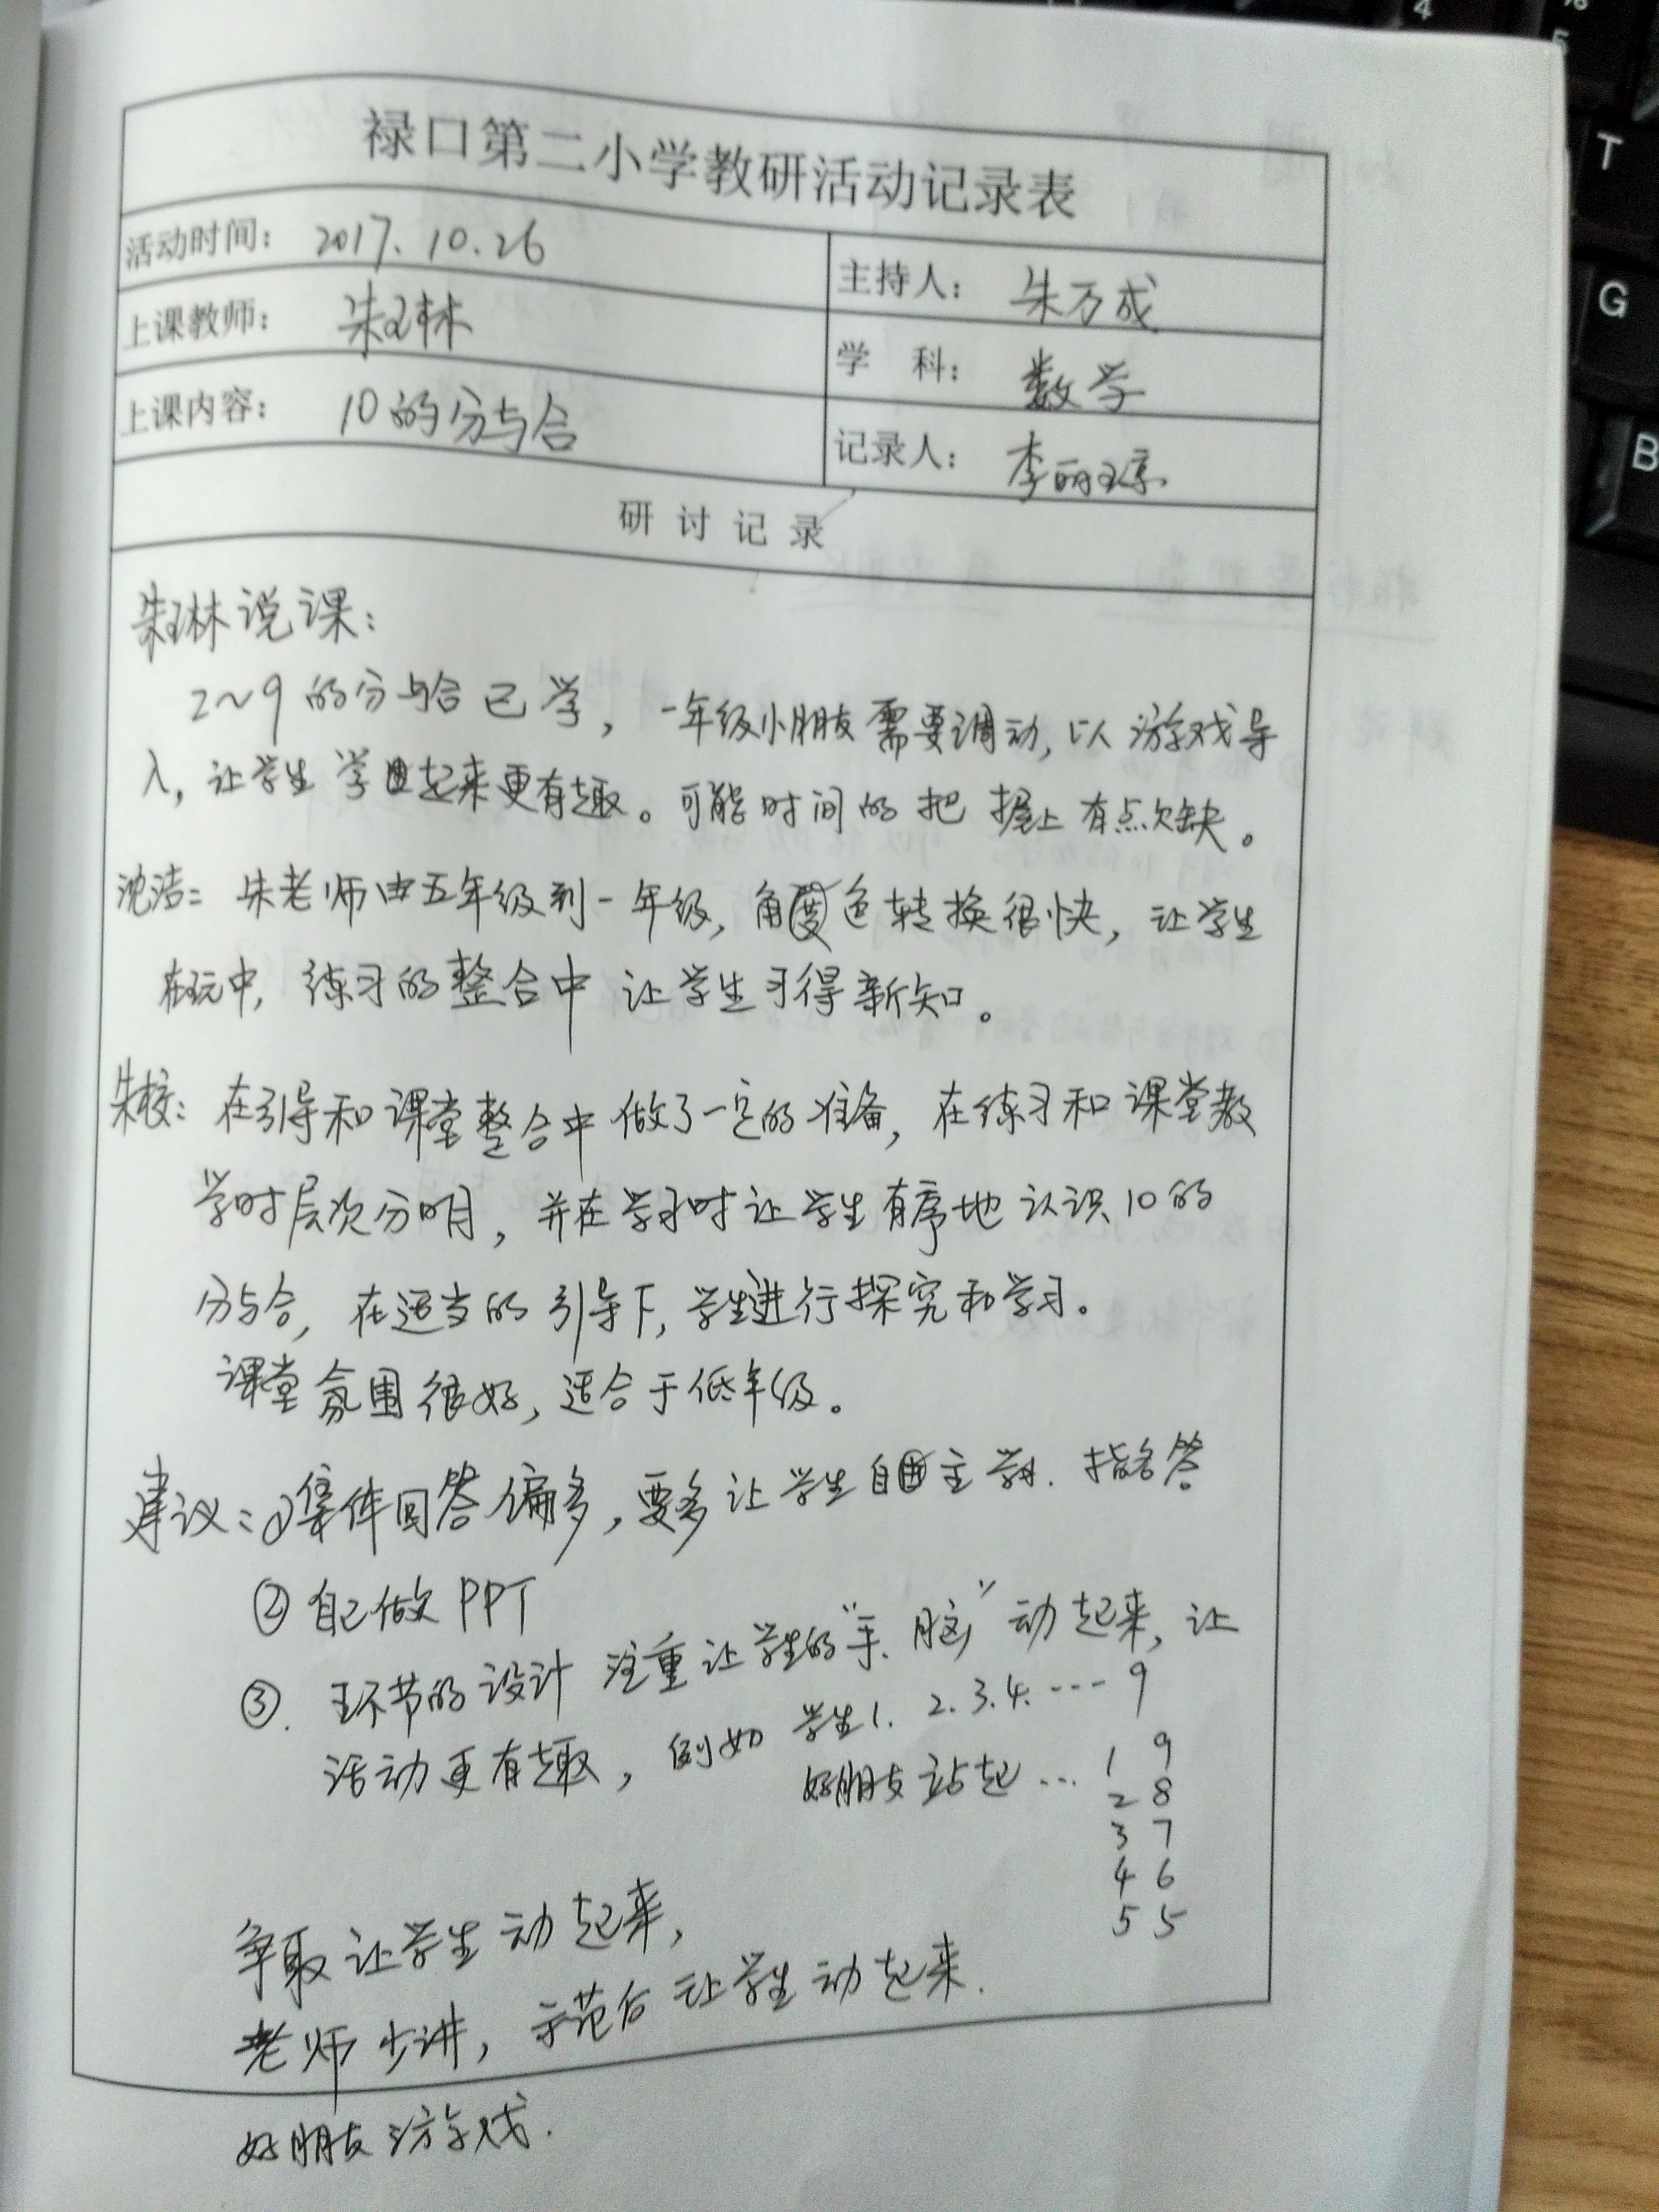 禄口第二小学教研活动记录表
活动时间： 2017.10.26
主持人： 朱万成
上课教师： 朱琳
学 科： 数学
上课内容： 10的分与合
记录人： 李丽琼
研 讨 记 录
朱琳说课：
2～9的分与合已学，一年级小朋友需要调动，以游戏导
入，让学生学起来更有趣。可能时间的把握上有点欠缺。
沈洁：朱老师由五年级到一年级，角色转换很快，让学生
在玩中，练习的整合中让学生习得新知。
朱校：在引导和课堂整合中做了一定的准备，在练习和课堂教
学时层次分明，并在学习时让学生有序地认识10的
分与合，在适当的引导下，学生进行探究和学习。
课堂氛围很好，适合于低年级。
建议：①集体回答偏多，要多让学生自主学习.指名答
②自己做PPT
③.环节的设计注重让学生的“手、脑”动起来，让
活动更有趣，例如 学生1. 2.3.4.…9
好朋友站起… 1 9
2 8
3 7
4 6
5 5
争取让学生动起来，
老师少讲，示范后让学生动起来.
好朋友游戏.